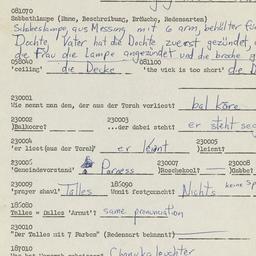 081070
Sabbathlampe (Name, Beschreibung, Bräuche, Redensarten)
Silsbeslampe, aus Messing, mit 6 arm, behälter für
Dochte, Vater hat die Dochte zuerst gezündet,
die Frau die Lampe angezündet und die broche g
058040 081100
'ceiling' die Decke 'the wick is too short' die D
230001
Wie nennt man den, der aus der Torah vorliest? bal kore
230002 230003
(Balkore?) ...der dabei steht? er steht seg
230004 230005
'er liest (aus der Torah)' er leient (leient?)
230006 230007 230008
'Gemeindevorstand' Parness (Roschekool?) (Gabbe?)
230009 186090
'prayer shawl' Talles Womit festgemacht? Nichts keine Sp
186080
Talles = Dalles 'Armut'? same pronunciation
230010
"Der Talles mit 7 Farben" (Redensart bekannt?)
187010
Chanukaleuchter